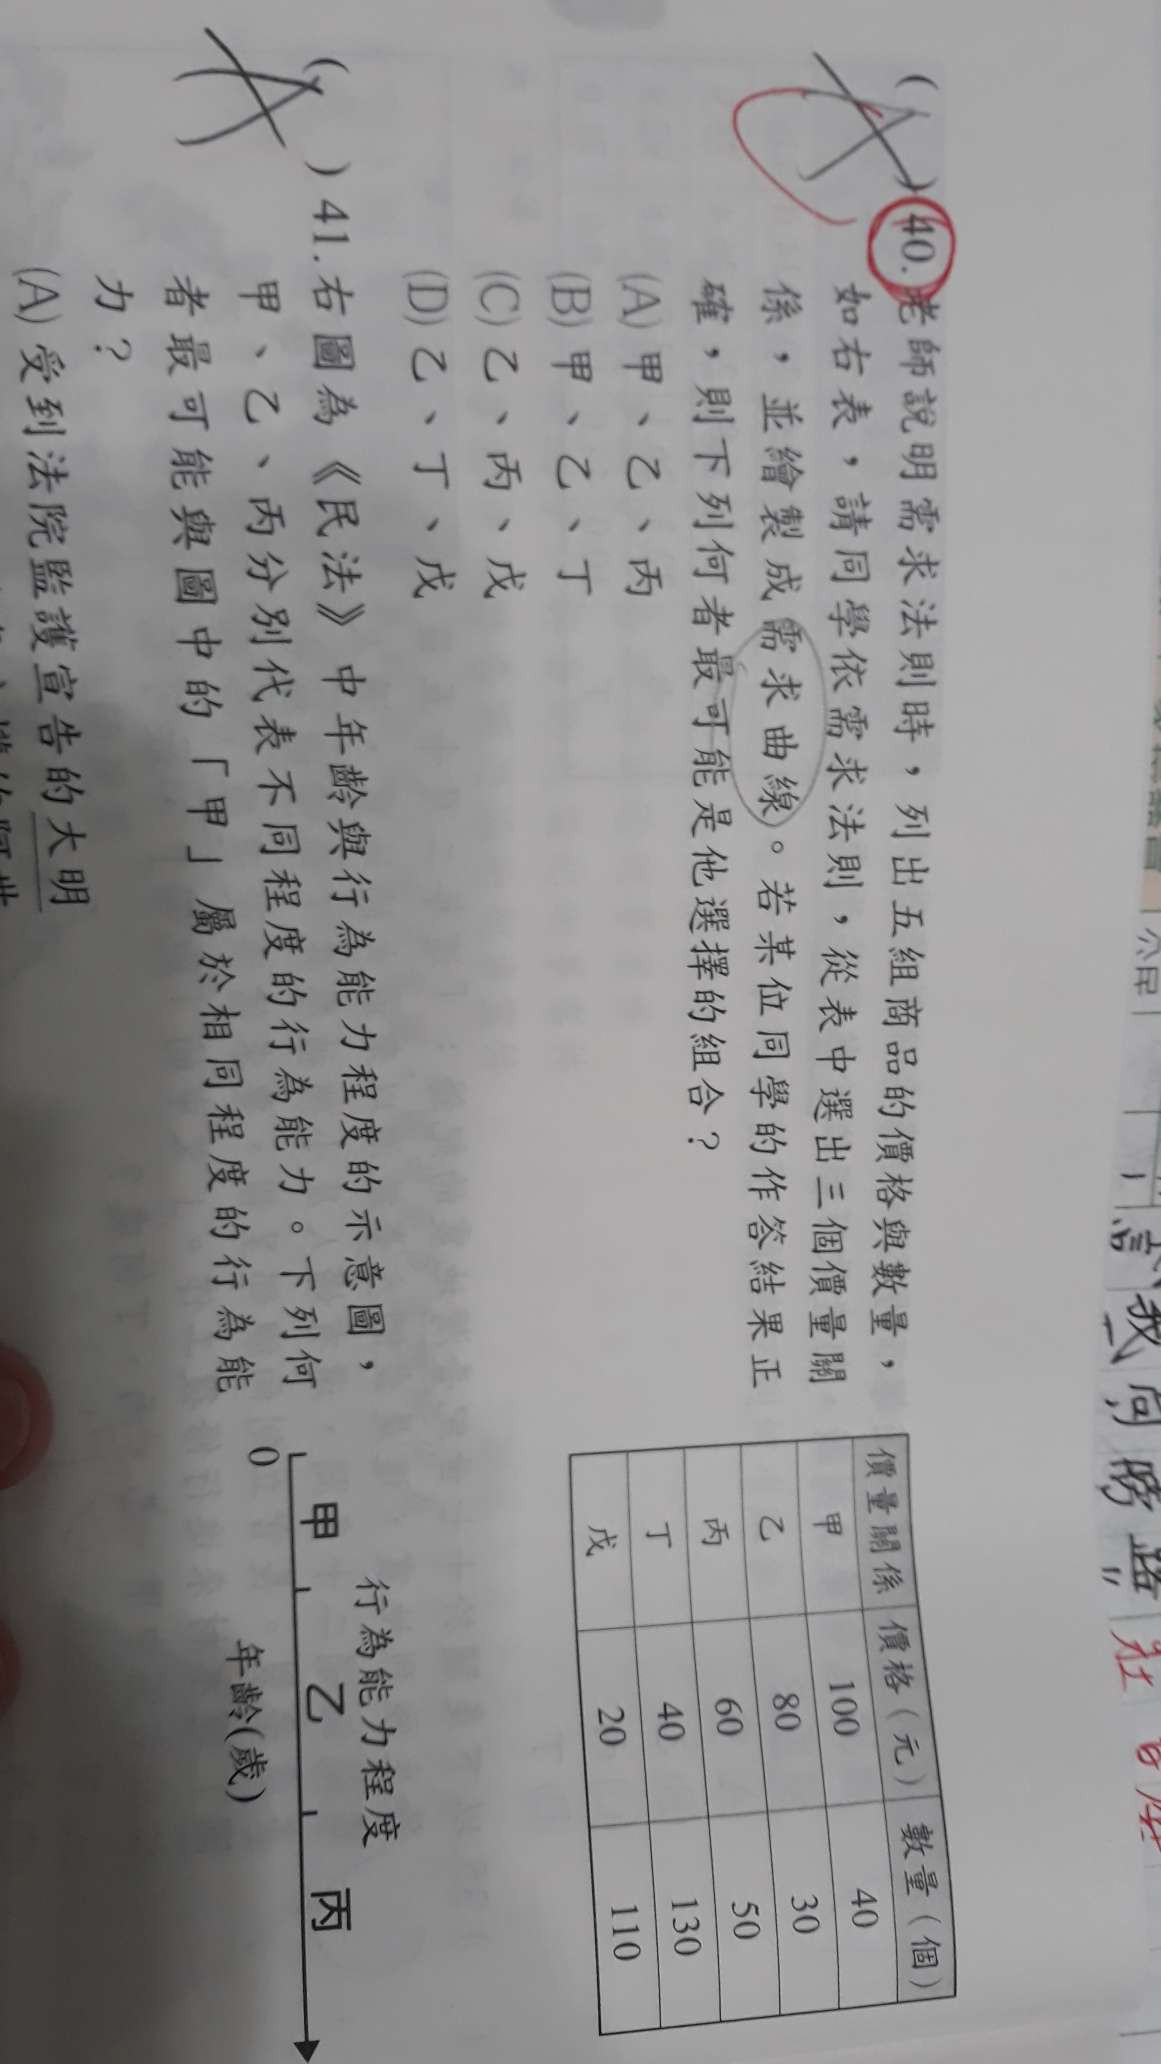 (A) 40. 老師說明需求法則時，列出五組商品的價格與數量，
如右表，請同學依需求法則，從表中選出三個價量關
係，並繪製成需求曲線。若某位同學的作答結果正
確，則下列何者最可能是他選擇的組合？
(A)甲、乙、丙
(B)甲、乙、丁
(C)乙、丙、戊
(D)乙、丁、戊
價量關係 價格（元） 數量（個）
甲 100 40
乙 80 30
丙 60 50
丁 40 130
戊 20 110
(A) 41. 右圖為《民法》中年齡與行為能力程度的示意圖，
甲、乙、丙分別代表不同程度的行為能力。下列何
者最可能與圖中的「甲」屬於相同程度的行為能
力？
行為能力程度
甲 乙 丙
0
年齡(歲)
(A)受到法院監護宣告的大明
公民